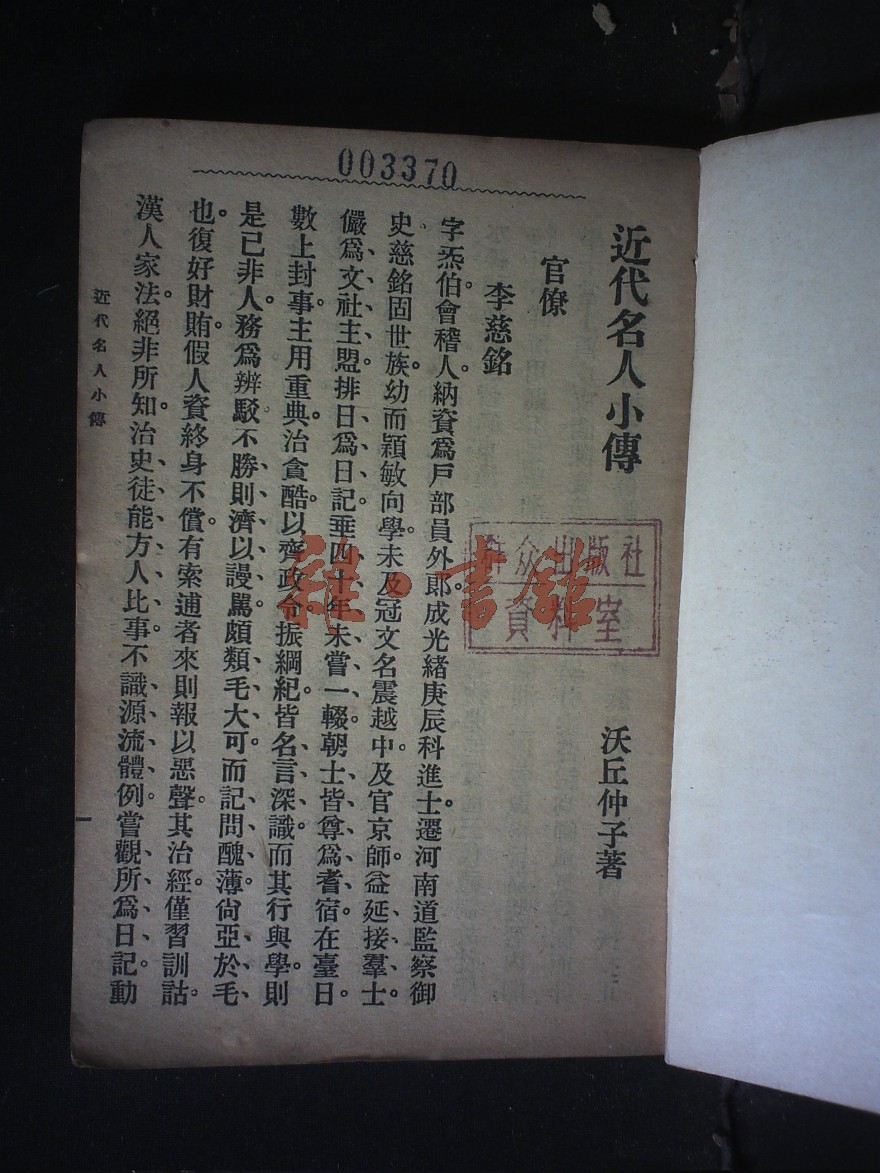 003370
近代名人小傳
沃丘仲子著
官僚
李慈銘
字炁伯會稽人。納資爲戶部員外郎。成光緒庚辰科進士。遷河南道監察御
史慈銘固世族。幼而穎敏向學。未及冠文名震越中。及官京師。益延接羣士、
儼爲文社主盟、排日爲日記。垂四十年未嘗一輟。朝士皆尊爲耆宿。在臺日。
數上封事。主用重典治貪酷。以齊政令。振綱紀。皆名言深識。而其行與學則
是已非人。務爲辨駁、不勝則濟以謾罵、頗類毛大可。而記問醜薄、尙亞於毛、
也。復好財賄。假人資終身不償。有索逋者來則報以惡聲。其治經僅習訓詁。
漢人家法。絕非所知。治史徒能方人比事、不識源流體例。嘗觀所爲日記、動
近代名人小傳
羣众出版社
資料室
雜·書館